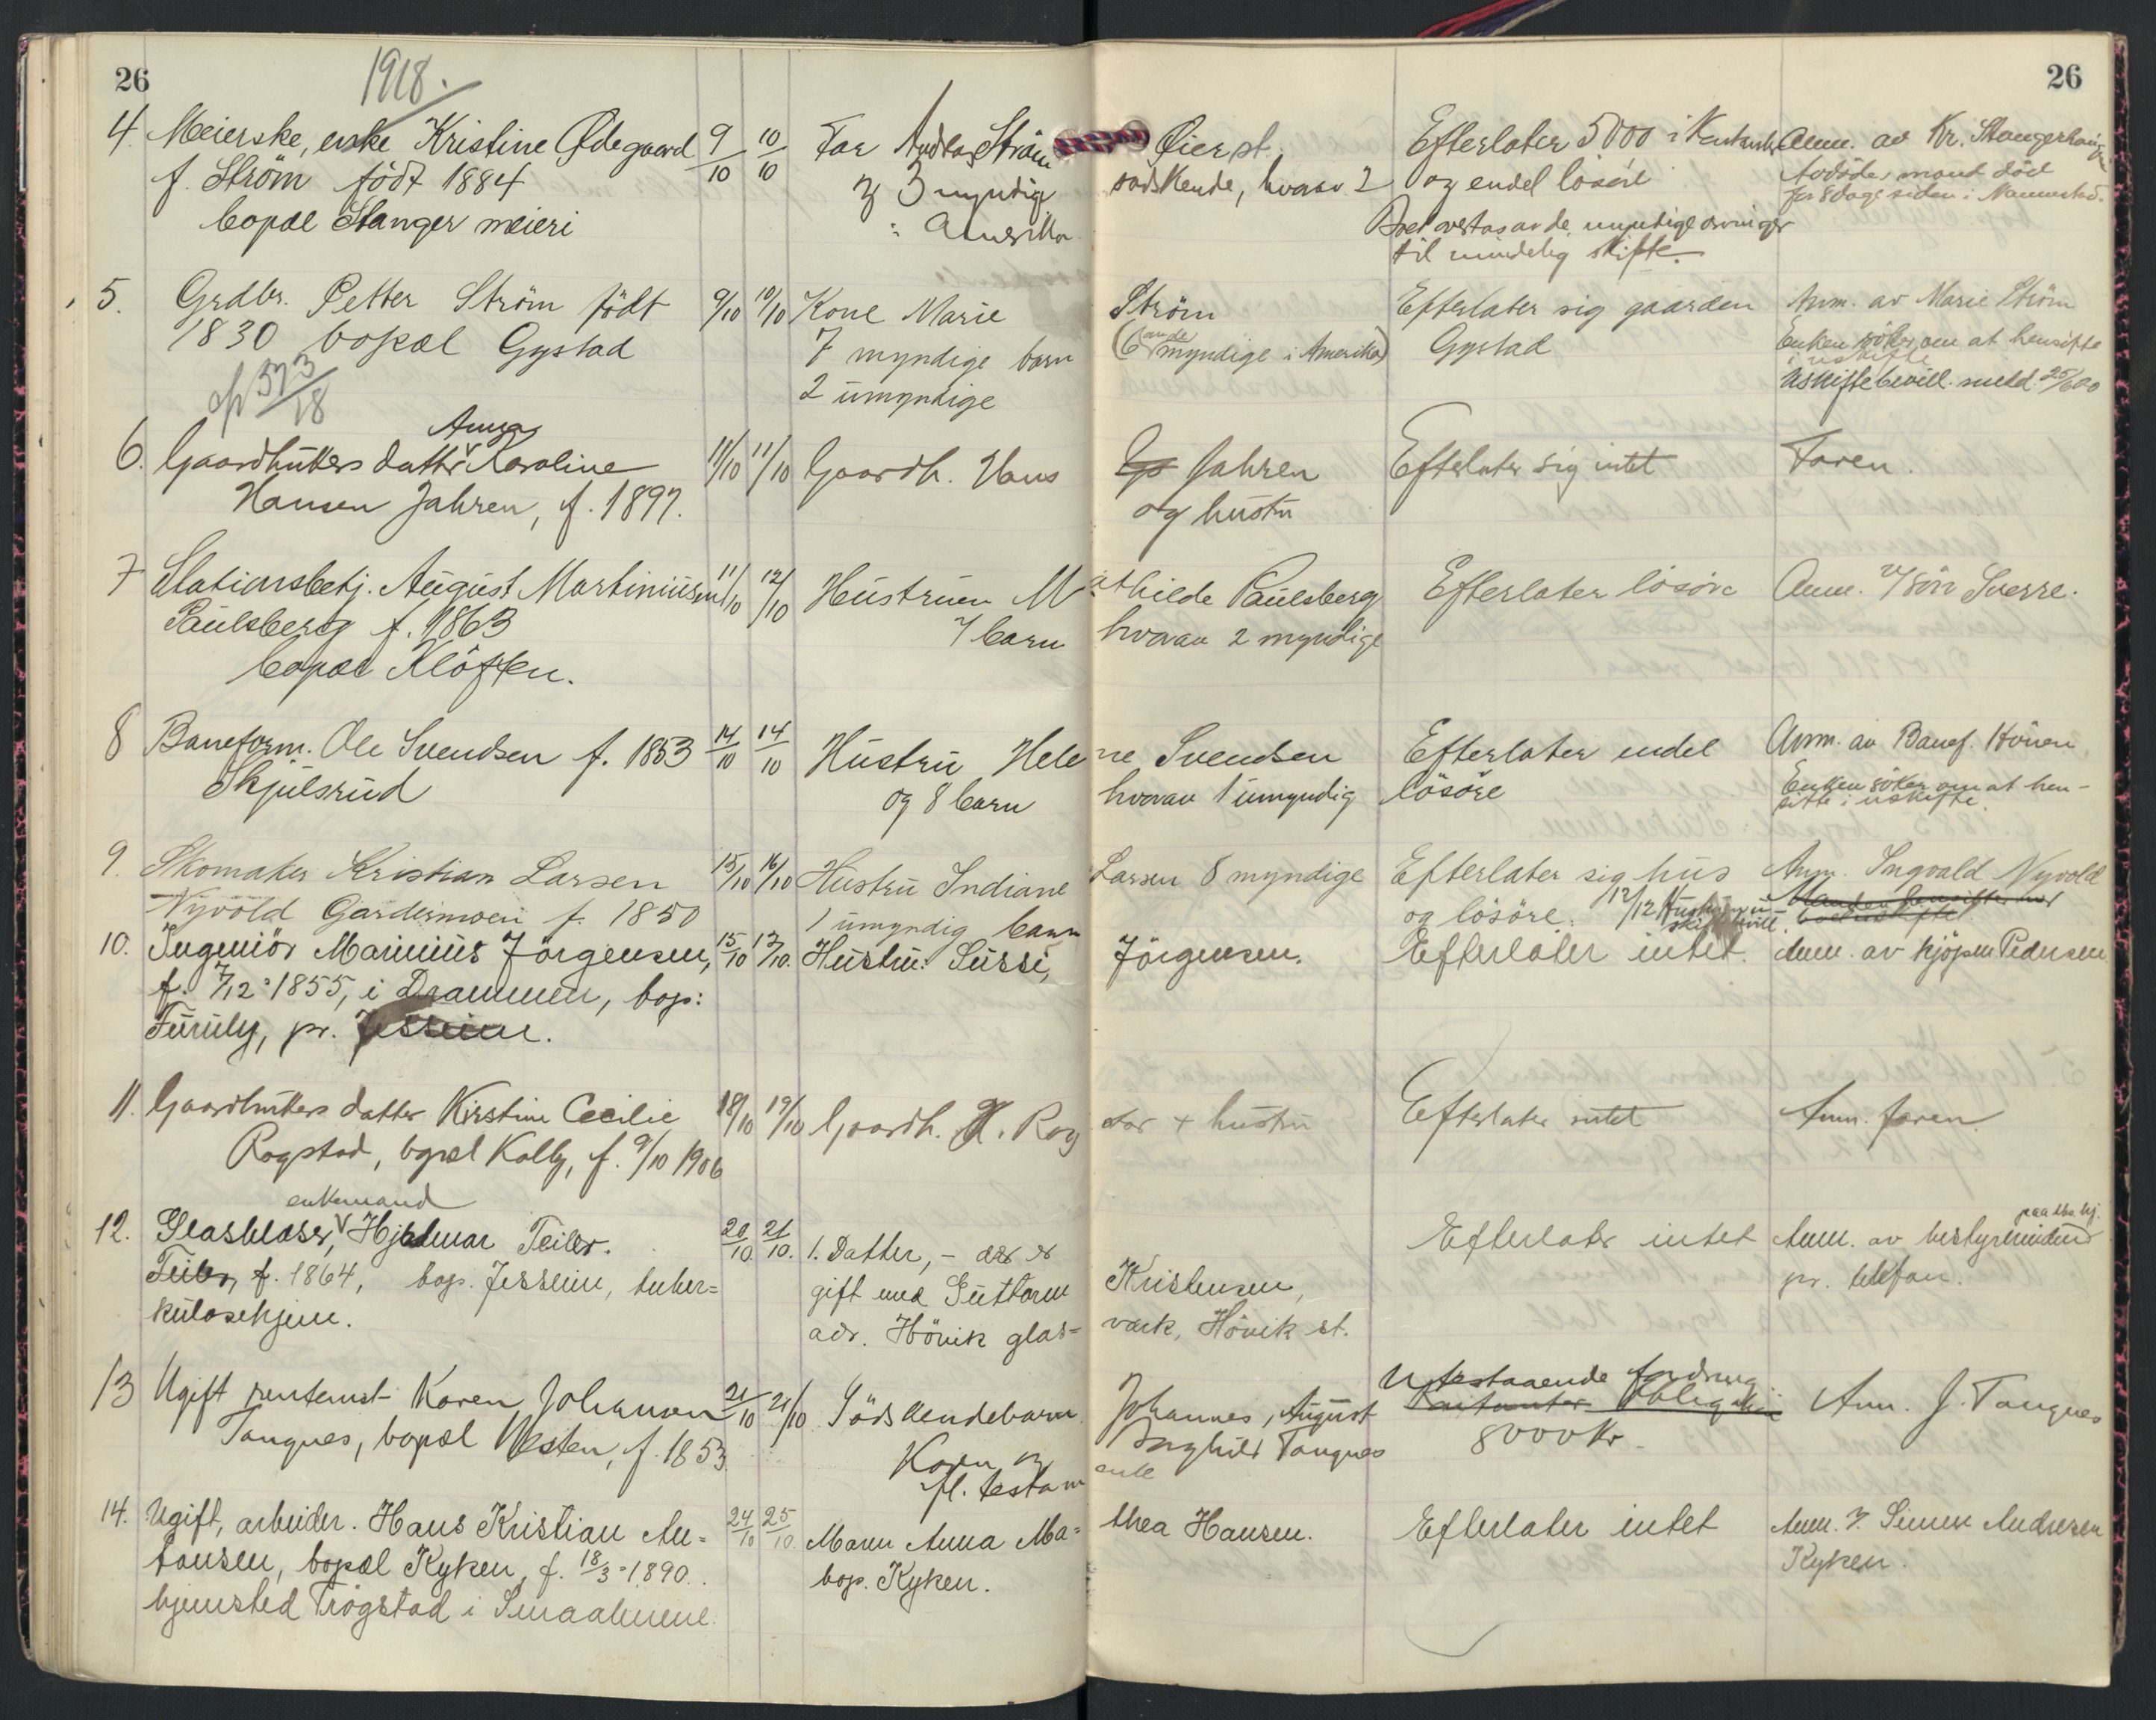 26
1918.
26
4. Meierske, enke Kristine Ødegaard 9/10 10/10 Far Andreas Ström Øier st. Efterlater 5000 i Kontanter Anm. av Kr. Stangerhaugen
f. Ström født 1884 og 3 myndige sødskende, hvorav 2 og endel lösöre Avdödes mand död
bopæl Stanger meieri i Amerika for 8 dage siden i Nannestad.
Boet overtas av de myndige arvinger
til mindelig skifte.
5. Grdbr. Petter Ström födt 9/10 10/10 Kone Marie Ström Efterlater sig gaarden Anm. av Marie Ström
1830 bopæl Gystad 7 myndige barn (6 myndige i Amerika) Gystad Enken söker om at hensitte
i uskifte
cfr 373/18 2 umyndige Uskiftebevill. meld. 25/6 20
Anna
6. Gaardbrukers datter v Karoline 11/10 11/10 Gaardb. Hans Jahren Efterlater sig intet Faren.
Hansen Jahren, f. 1897. og hustru
7 Stationsbetj. August Martiniusen 11/10 12/10 Hustruen Mathilde Paulsberg Efterlater lösöre Anm. v/ sön Sverre.
Paulsberg f. 1863 7 barn hvorav 2 myndige
bopæl Klöften.
8 Baneform. Ole Svendsen f. 1853 14/10 14/10 Hustru Helene Svendsen Efterlater endel Anm. av Banef. Hönen
Skjulsrud og 8 barn hvorav 1 umyndig lösöre Enken söker om at hen-
sitte i uskifte.
9. Skomaker Kristian Larsen 15/10 16/10 Hustru Indiane Larsen 8 myndige Efterlater sig hus Anm. Ingvald Nyvold
Nyvold Gardermoen f. 1850 1 umyndig barn og lösöre. 12/12
10. Ingeniör Marinius Jörgensen, 15/10 17/10. Hustru: Sussi, Jörgensen. Efterlater intet. Anm. av kjöpm Pedersen
f. 7/12 1855, i Drammen, bop:
Furuly, pr. Jessheim.
11. Gaardbrukers datter Kirstine Cecilie 18/10 19/10 Gaardb. H. Rogstad + hustru Efterlater intet Anm. faren.
Rogstad, bopæl Kolby, f. 9/10 1906
enkemand
12. Glasblaser, v Hjalmar Teiler. 20/10 21/10. 1. Datter, - der er Efterlater intet Anm. av bestyrerinden
Teiler, f. 1864, bop. Jessheim, tuber= gift med Guttorm Kristensen, pr. telefon.
kulosehjem. adr. Hövik glas= værk, Hövik st.
13 Ugift rentenist Karen Johannen 21/10 21/10 Södskendebarn Johannes, August Utestaaende fordring Anm. J. Tangnes
Tangnes, bopæl Vesten, f. 1853 Karen og Inghild Tangnes 8000 Kr.
fl. testamente
14. Ugift, arbeider. Hans Kristian An= 24/10 25/10. Moren Anna Ma= thea Hansen. Efterlater intet Anm. v. Simen Andresen
tonsen, bopæl Kyken, f. 18/3 1890. bop. Kyken. Kyken.
hjemsted Trögstad i Smaalenene.